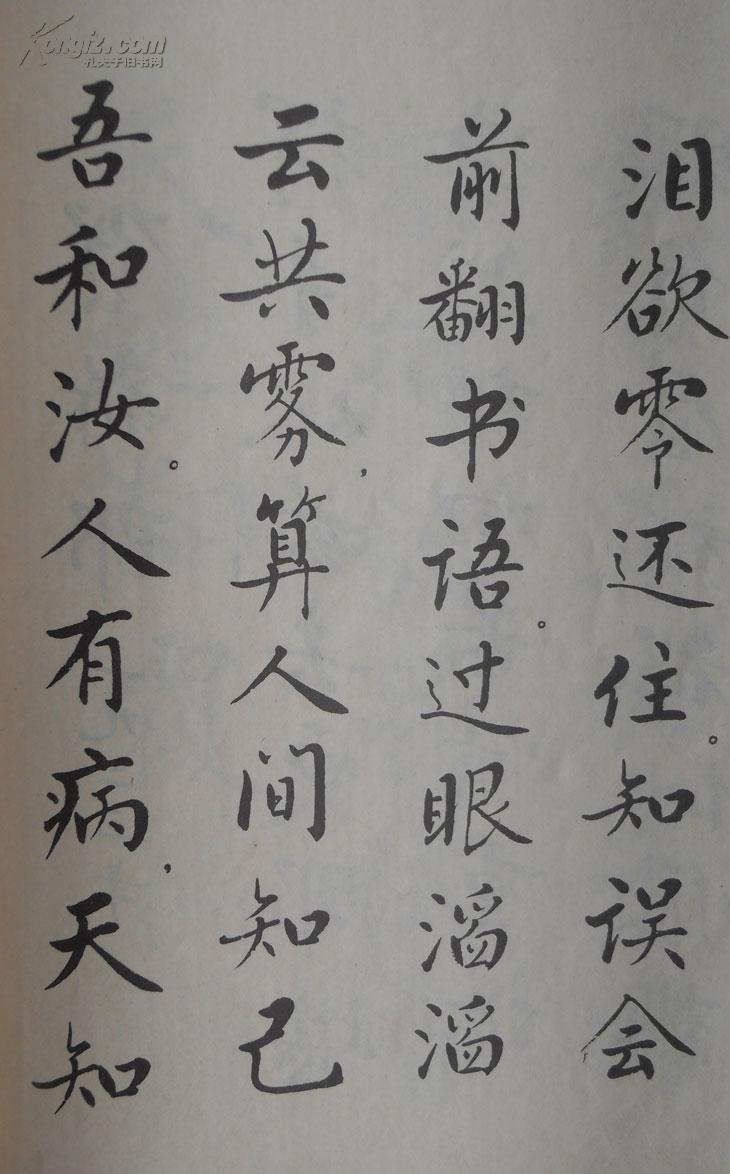 Kongfz.com
孔夫子旧书网
泪欲零还住。知误会
前翻书语。过眼滔滔
云共雾，算人间知己
吾和汝。人有病，天知